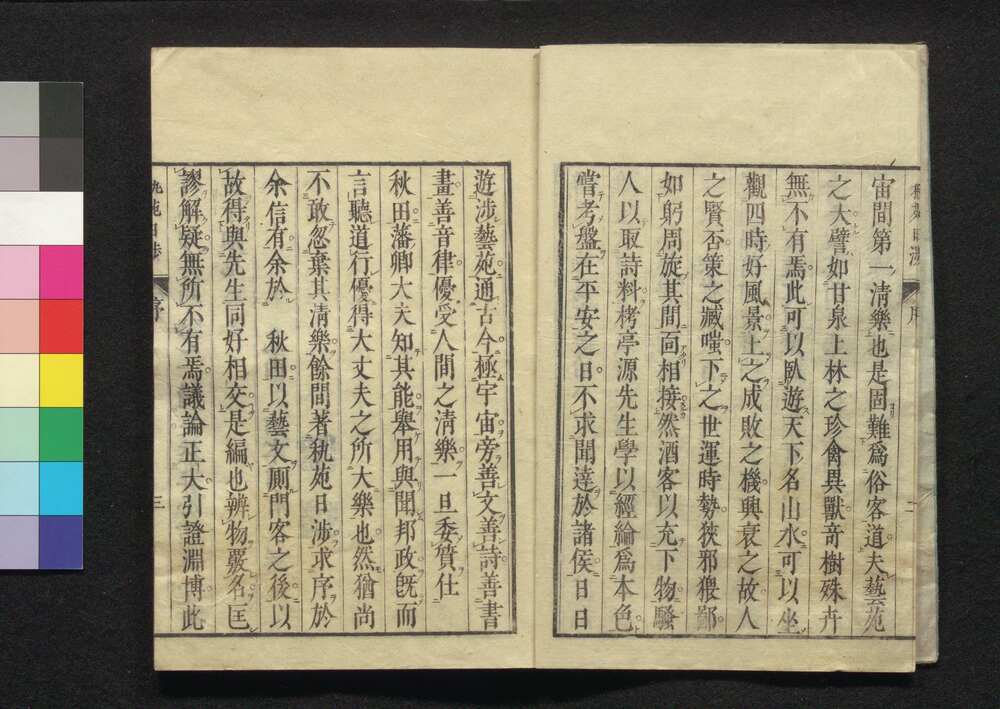 宙間第一清樂也是固難爲俗客道夫藝苑
之大譬如甘泉上林之珍禽異獸奇樹殊卉
無不有焉此可以臥遊天下名山水可以坐
觀四時好風景上之成敗之機興衰之故人
之賢否策之臧嗤下之世運時勢狹邪猥鄙
如躬周旋其間面相接然酒客以充下物騷
人以取詩料栲亭源先生學以經綸爲本色
嘗考盤在平安之日不求聞達於諸侯日日
遊涉藝苑通古今極宇宙旁善文善詩善書
畫善音律優受人間之清樂一旦委質仕
秋田藩卿大夫知其能舉用與聞邦政既而
言聽道行優得大丈夫之所大樂也然猶尚
不敢忽棄其清樂餘間著秇苑日涉求序於
余信有余於 秋田以藝文厠門客之後以
故得與先生同好相交是編也辨物覈名匡
謬解疑無所不有焉議論正大引證淵博此
秇苑日涉 序 三